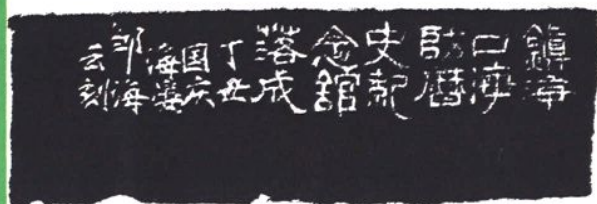 鎮海
口海
防曆
史紀
念舘
落成
丁丑
国庆
海
邹海
云刻